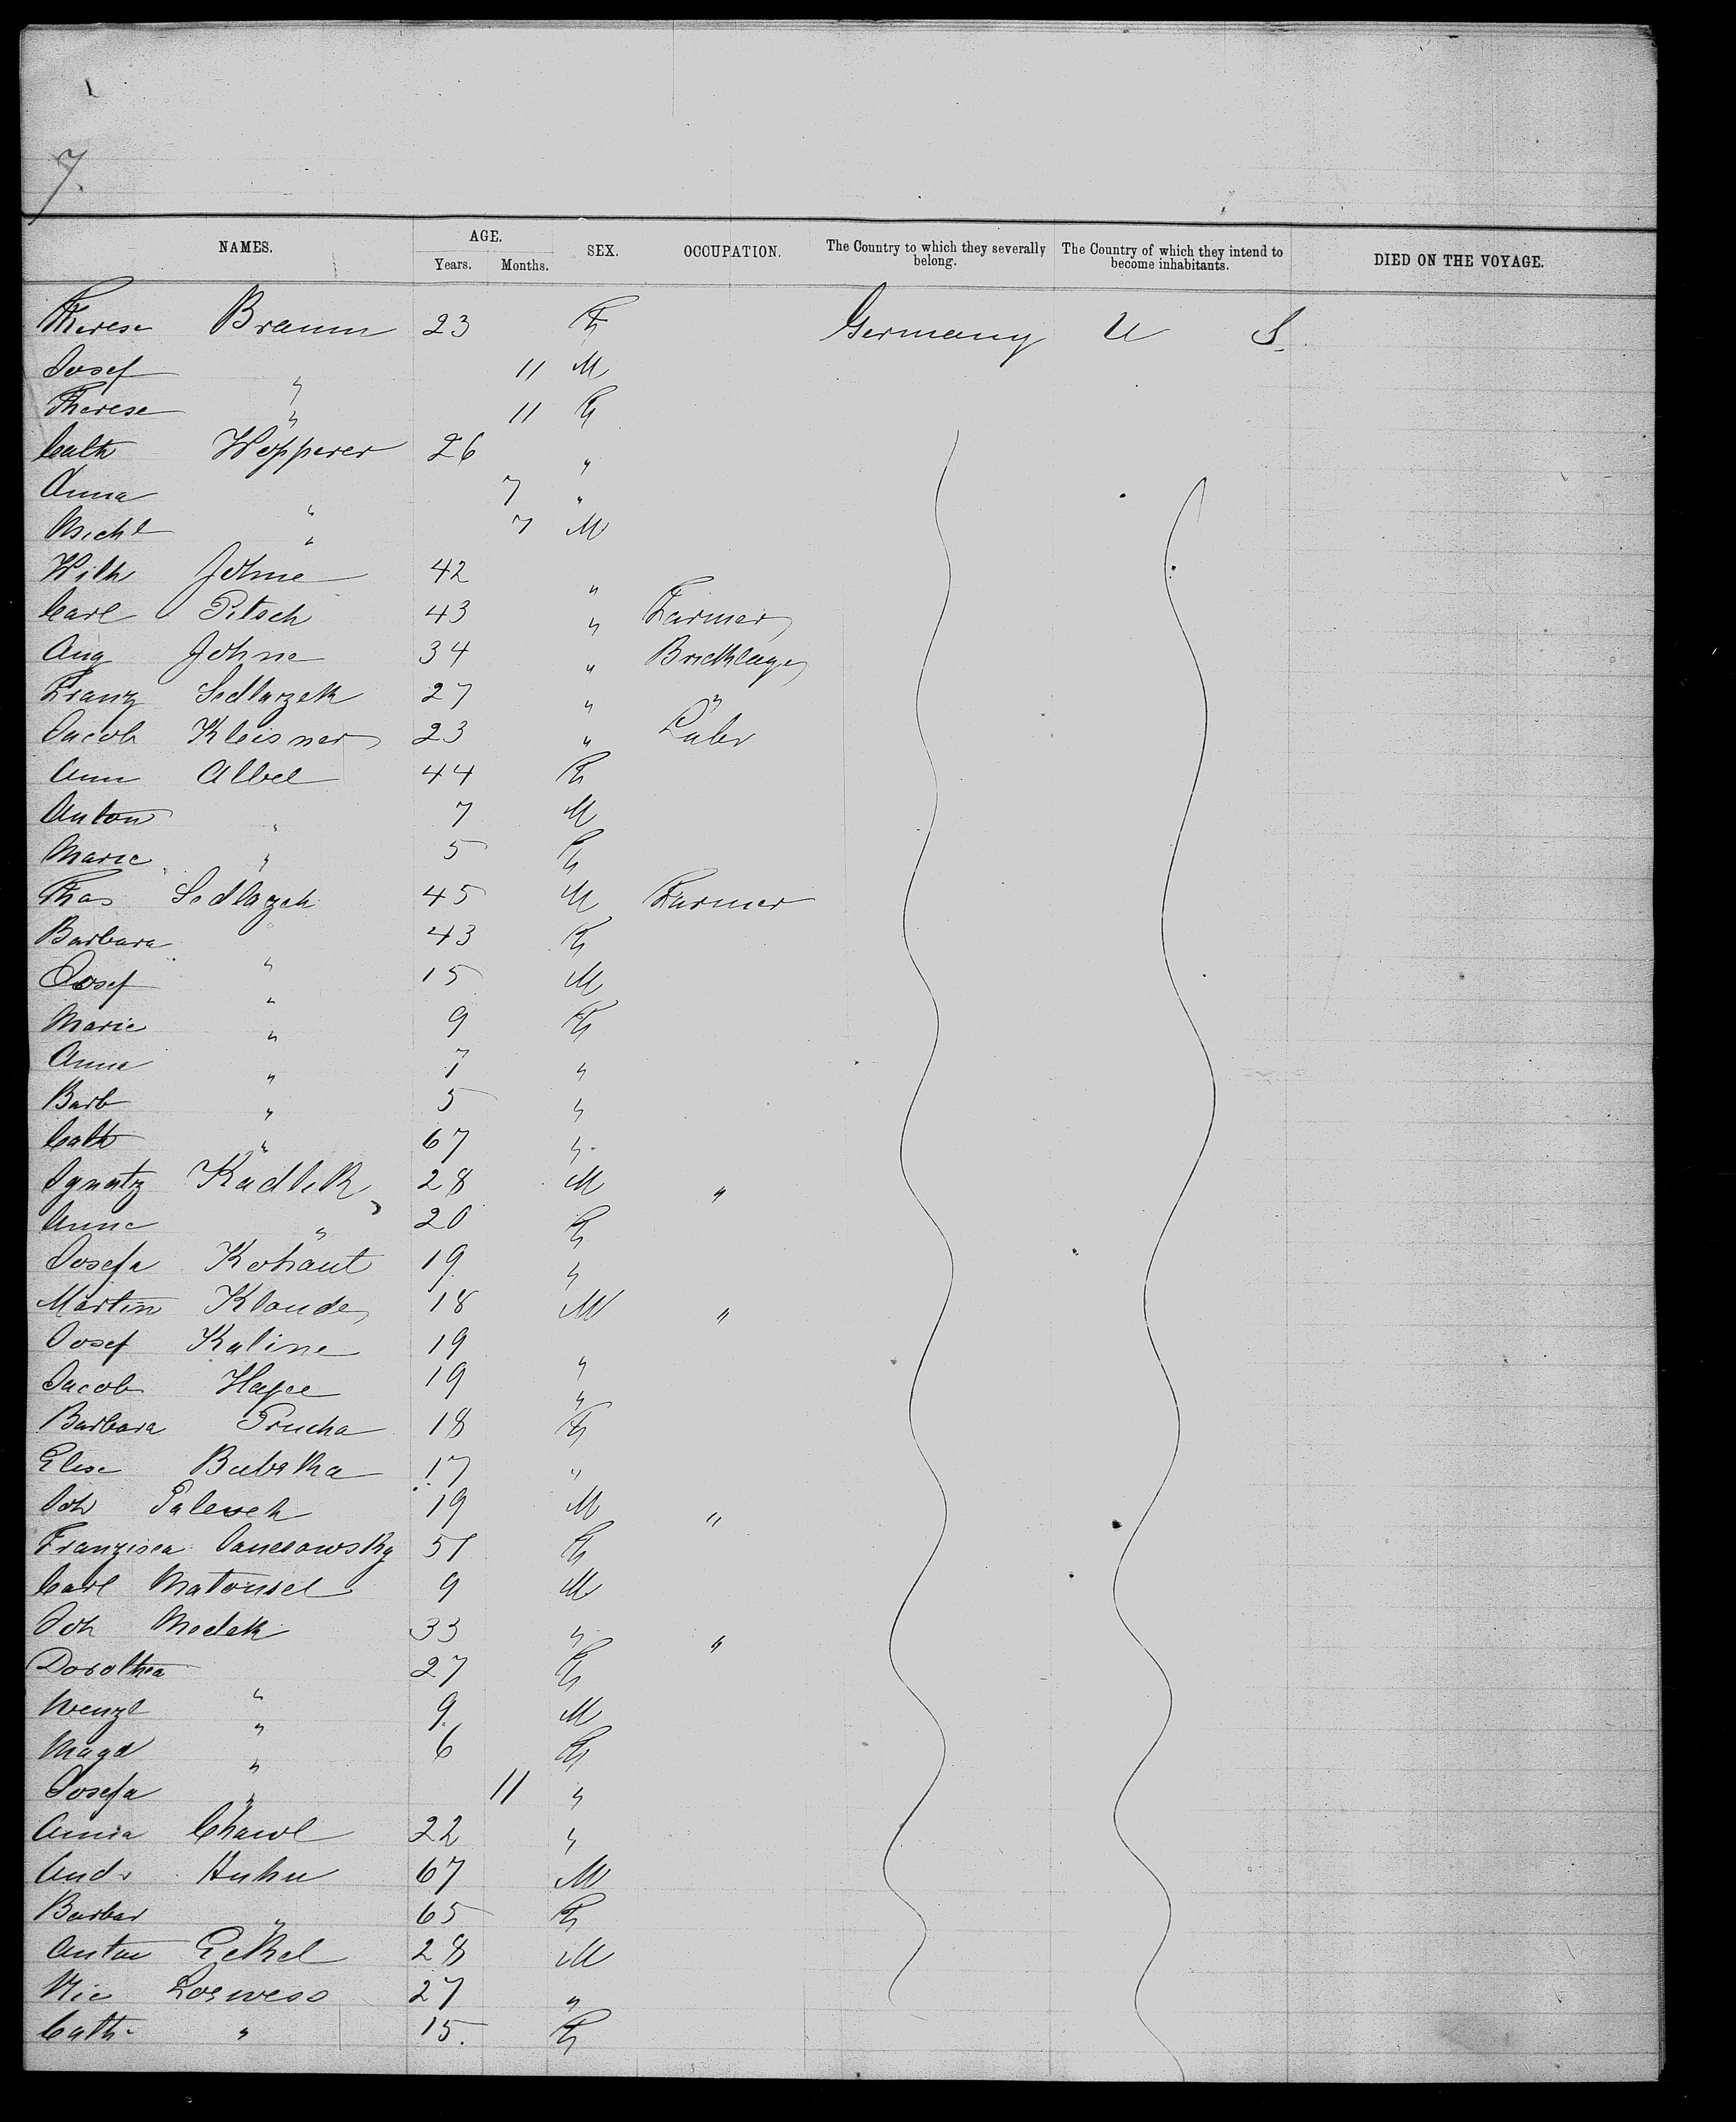 7.
NAMES. AGE. Years. Months. SEX. OCCUPATION. The Country to which they severally belong. The Country of which they intend to become inhabitants. DIED ON THE VOYAGE.
Therese Braum 23 F Germany U S.
Josef " 11 M
Therese " 11 F
Cath Wopperer 26 "
Anna " 7 "
Michl " 7 M
Wilh Johne 42 "
Carl Pitsch 43 " Farmer
Aug Johne 34 " Bricklayer
Franz Sedlarzek 27 " "
Jacob Kleisner 23 " Labr
Ann Albel 44 F
Anton " 7 M
Marie " 5 F
Thos Sedlazek 45 M Farmer
Barbara " 43 F
Josef " 15 M
Marie " 9 F
Anna " 7 "
Barb " 5 "
Cath " 67 "
Ignatz Kadlek 28 M "
Anna " 20 F
Josefa Kohaut 19 "
Martin Klaude 18 M "
Josef Kaline 19 "
Jacob 19 "
Barbara Prucha 18 F
Elise Babska 17 "
Joh 19 M "
Franzisca Janesowsky 51 F
Carl Matousel 9 M
Joh Medek 33 " "
Dorothea " 27 F
Wenzl " 9 M
Magd " 6 F
Josefa " 11 "
Anna Chawl 22 "
Andr Huhn 67 M
Barbar " 65 F
Anton Gekel 28 M
Nic Loewess 27 "
Cath " 15. F